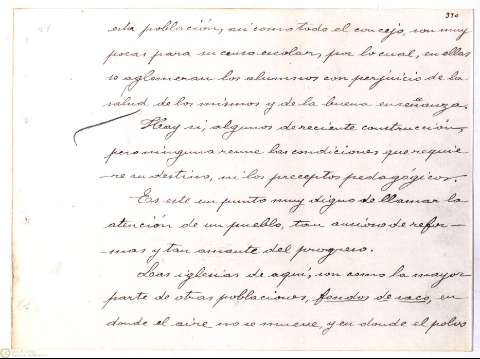 330
esta población, así como todo el concejo, son muy
pocas para su censo escolar, por lo cual, en ellas
se aglomeran los alumnos con perjuicio de la
salud de los mismos y de la buena enseñanza.
Hay si, algunos de reciente construcción,
pero ninguna reune las condiciones que requie-
re su destino, ni los preceptos pedagógicos.
Es este un punto muy digno de llamar la
atención de un pueblo, tan ansioso de refor-
mas y tan amante del progreso.
Las iglesias de aquí, son como la mayor
parte de otras poblaciones, fondos de saco, en
donde el aire no se mueve, y en donde el polvo